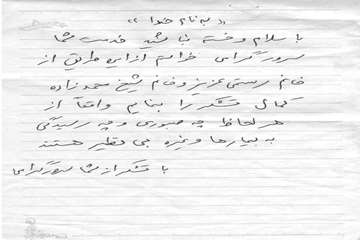 «به نام خدا»
با سلام و خسته نباشید خدمت شما
سرور گرامی خواستم از این طریق از
خانم رستمی عزیز و خانم شیخ محمدزاده
کمال تشکر را بنمایم واقعاً از
هر لحاظ چه صبوری و چه رسیدگی
به بیمارها و غیره بی نظیر هستند
با تشکر از شما سرور گرامی